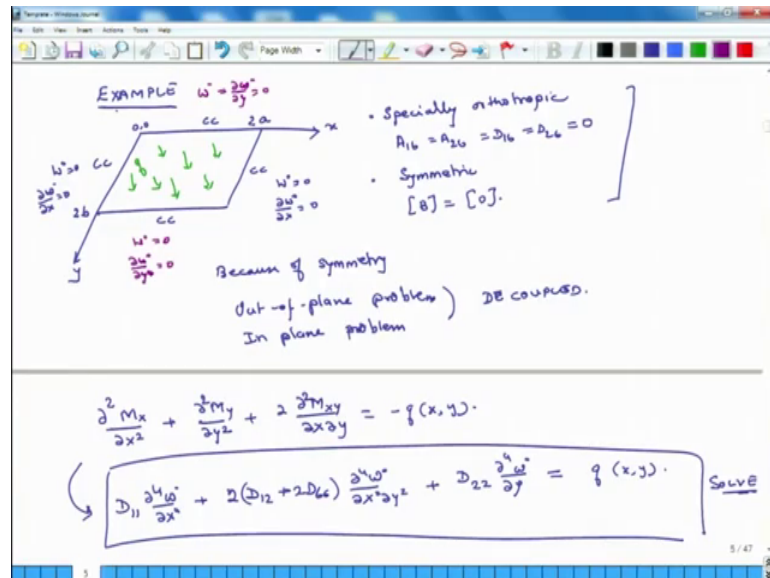 Template - Windows Journal
File Edit View Insert Actions Tools Help
Page Width
EXAMPLE w° = ∂w°/∂y = 0
0,0 cc 2a x
w°=0 cc
∂w°/∂x = 0
q
cc
w°=0
∂w°/∂x = 0
2b cc
y
w°=0
∂w°/∂y = 0
• Specially orthotropic
A₁₆ = A₂₆ = D₁₆ = D₂₆ = 0
• Symmetric
[B] = [0].
Because of symmetry
Out-of-plane problem ) DECOUPLED.
In plane problem
∂²Mx/∂x² + ∂²My/∂y² + 2 ∂²Mxy/∂x∂y = -q(x,y).
D₁₁ ∂⁴w°/∂x⁴ + 2(D₁₂ + 2D₆₆) ∂⁴w°/∂x²∂y² + D₂₂ ∂⁴w°/∂y = q (x,y). SOLVE
5 / 47
5